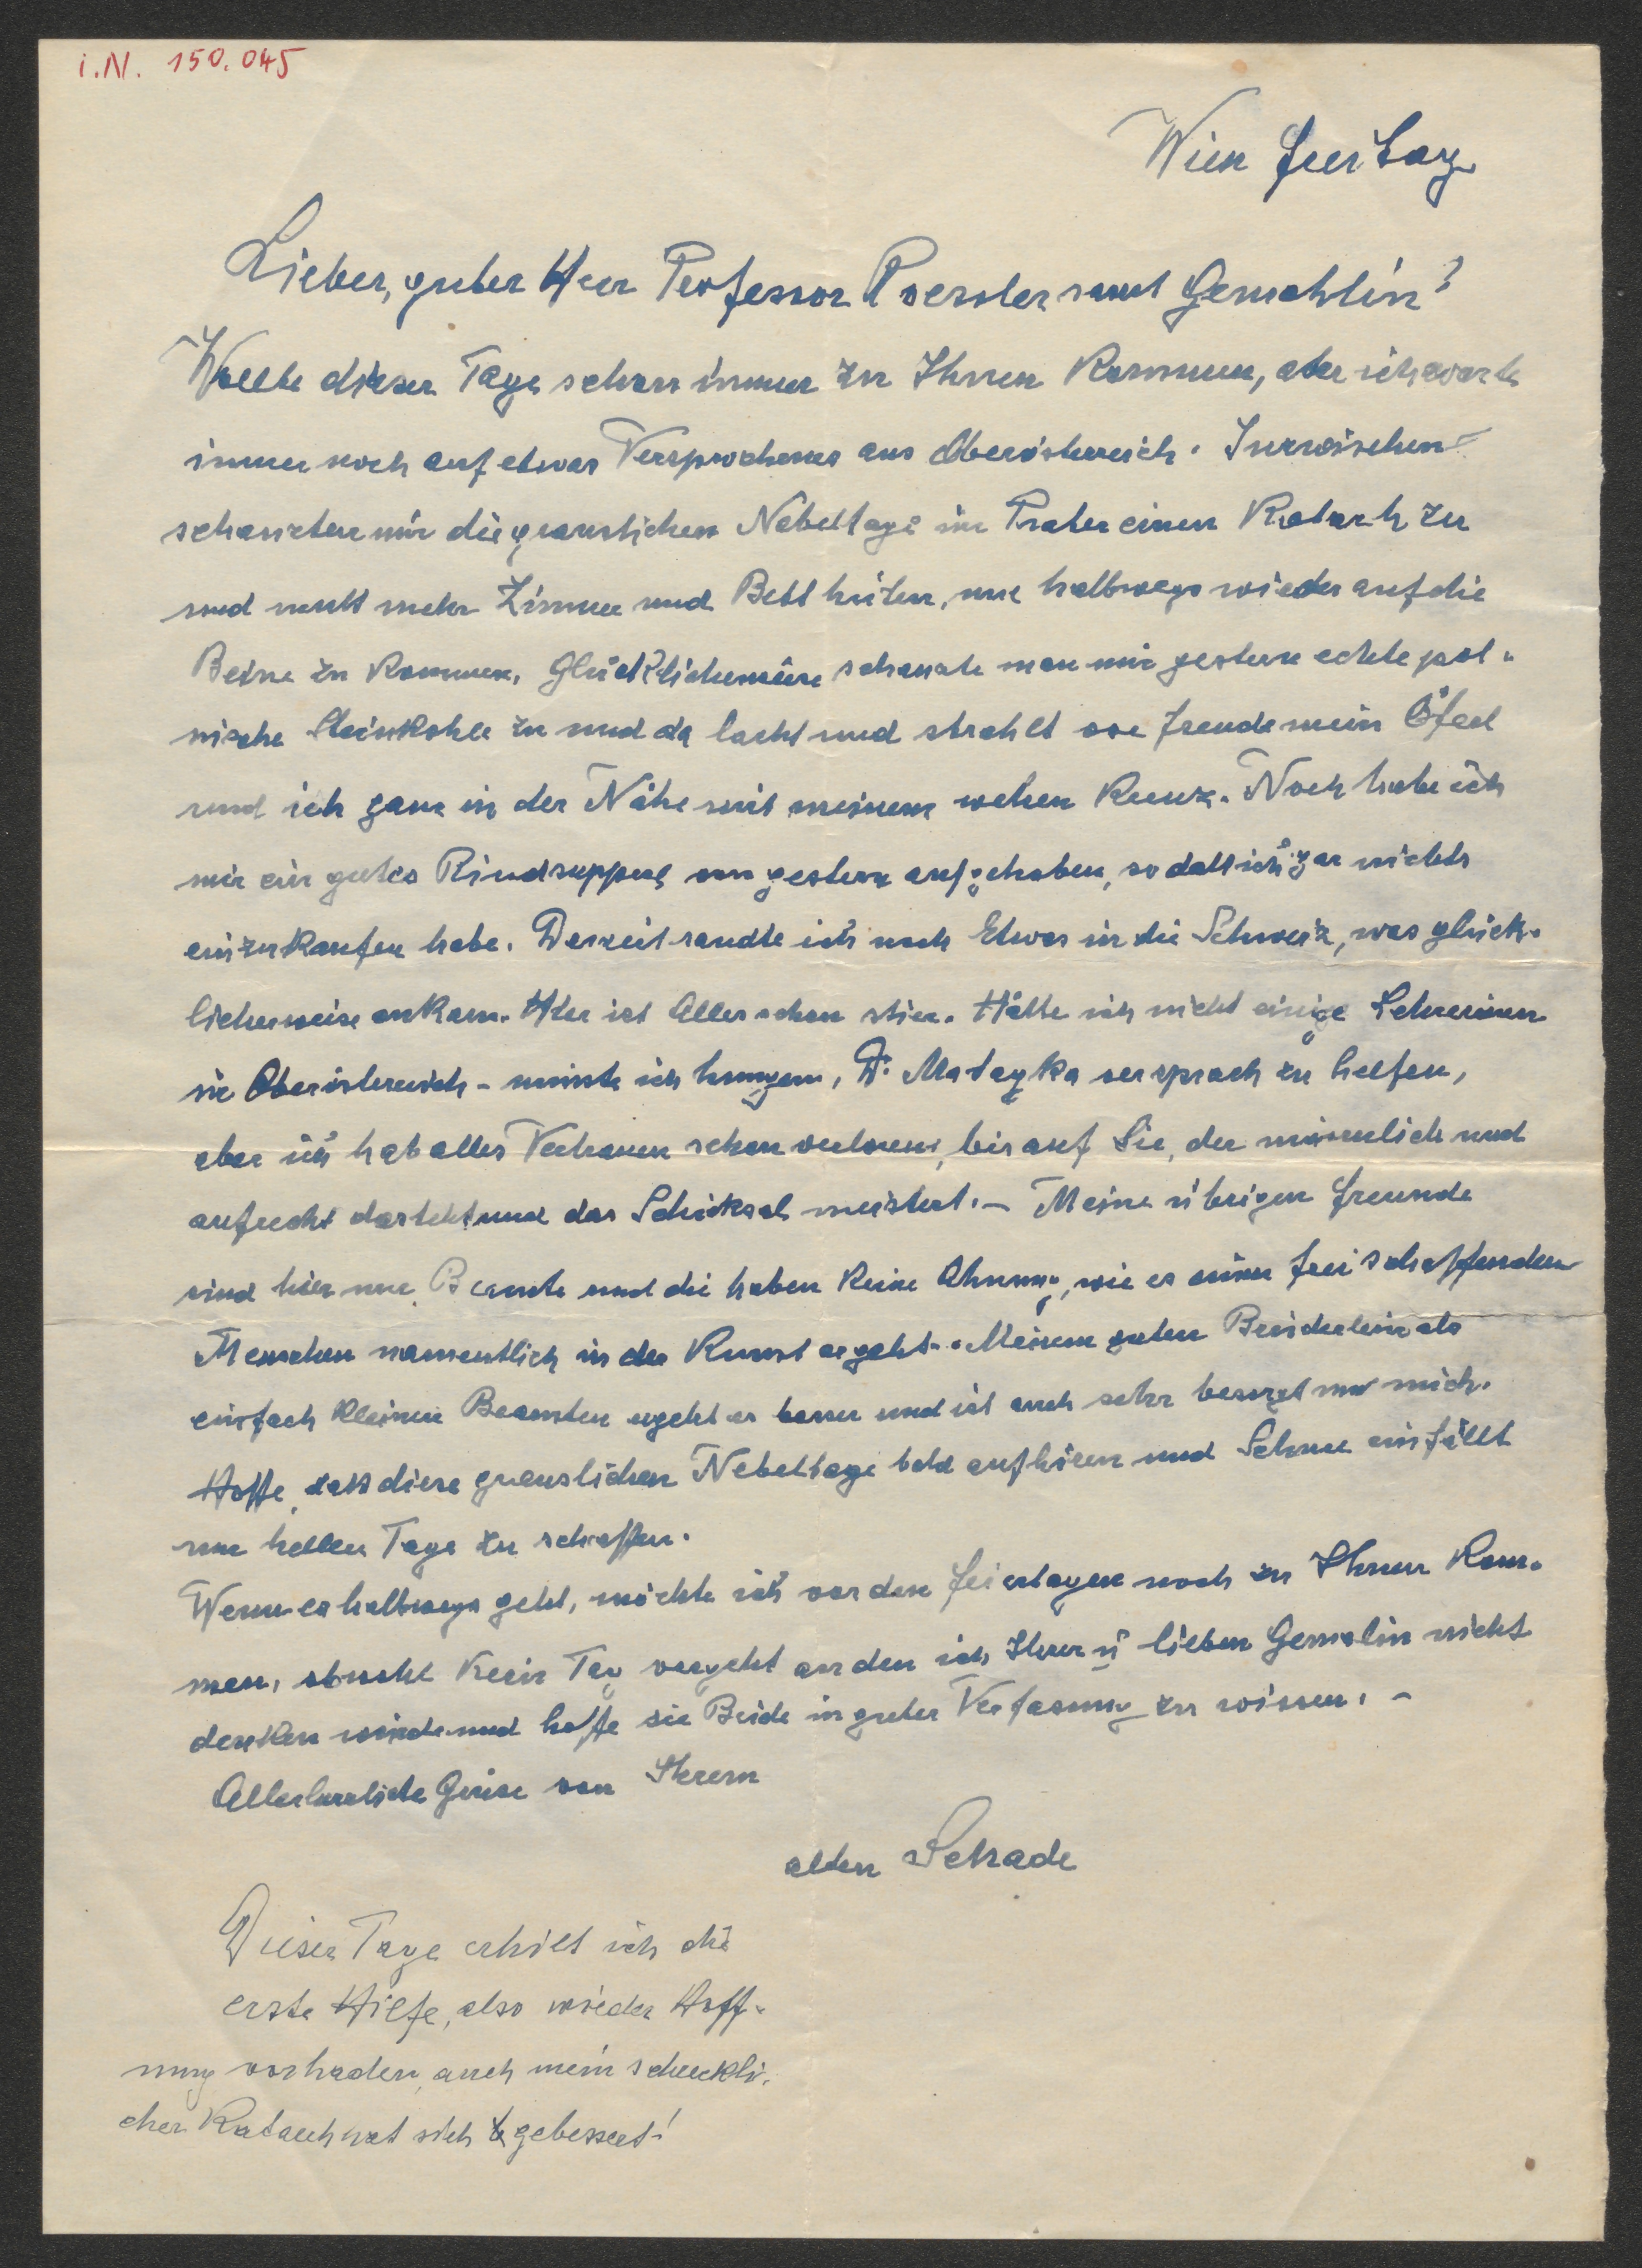 i.N. 150.045
Wien Freitag
Lieber, guter Herr Professor Roessler samt Gemahlin!
Wollte dieser Tage schon immer zu Ihnen Kommen, aber ich warte
immer noch auf etwas Versprochenes aus Oberösterreich. Inzwischen
schanzten mir die grauslichen Nebeltage im Prater einen Katarh zu
und muß mehr Zimmer und Bett hüten, um halbwegs wieder auf die
Beine zu Kommen. Glücklicherweise schanzte man mir gestern echte pol-
nische Steinkohle zu und da lacht und strahlt vor Freude mein Öferl
und ich ganz in der Nähe mit meinem wehen Kreuz. Noch habe ich
mir ein gutes Rindsupperl von gestern aufgehoben, so daß ich gar nichts
einzukaufen habe. Derzeit sandte ich noch Etwas in die Schweiz, was glück-
licherweise ankam. Hier ist Alles schon stier. Hätte ich nicht einige
in Oberösterreich - müsste ich hungern, Dr. Matayka versprach zu helfen,
aber ich hab alles Vertrauen schon verloren, bis auf Sie, der männlich und
aufrecht dasteht und das Schicksal meistert. - Meine übrigen Freunde
sind hier nur Beamte und die haben Keine Ahnung, wie es einem frei schaffenden
Menschen namentlich in der Kunst ergeht. Meinem guten Brüderlein als
einfach Kleinen Beamten ergeht es besser und ist auch sehr besorgt um mich.
Hoffe, daß diese grauslichen Nebeltage bald aufhören und Schnee einfällt
um hellere Tage zu schaffen.
Wenn es halbwegs geht, möchte ich vor den Feiertagen noch zu Ihnen Kom-
men, obwohl Kein Tag vergeht an den ich Ihrer u lieben Gemalin nicht
denken würde und hoffe sie Beide in guter Verfasung zu wissen. -
Allerherzlichste Grüse von Ihrem
alten Schade
Dieser Tage erhielt ich die
erste Hilfe, also wieder Hoff-
nung vorhaden, auch mein schreckli-
cher Katarrh hat sich gebessert!